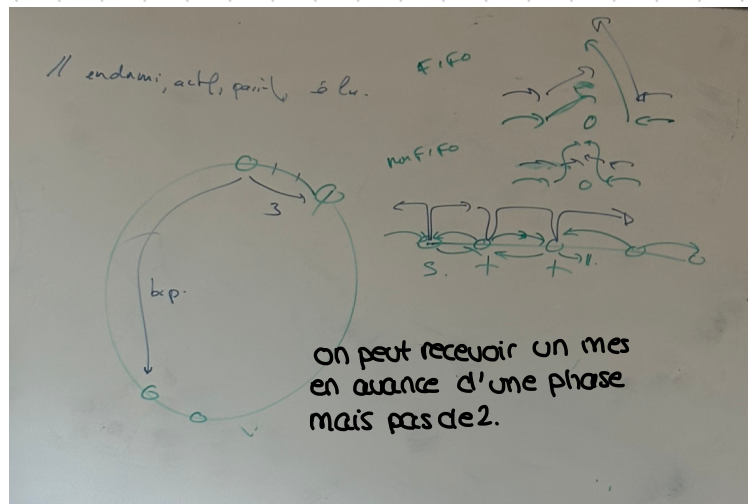 // endormi, actif, passif, élu.
FIFO
non FIFO
3
bcp.
S. + + //.
on peut recevoir un mes
en avance d'une phase
mais pas de 2.